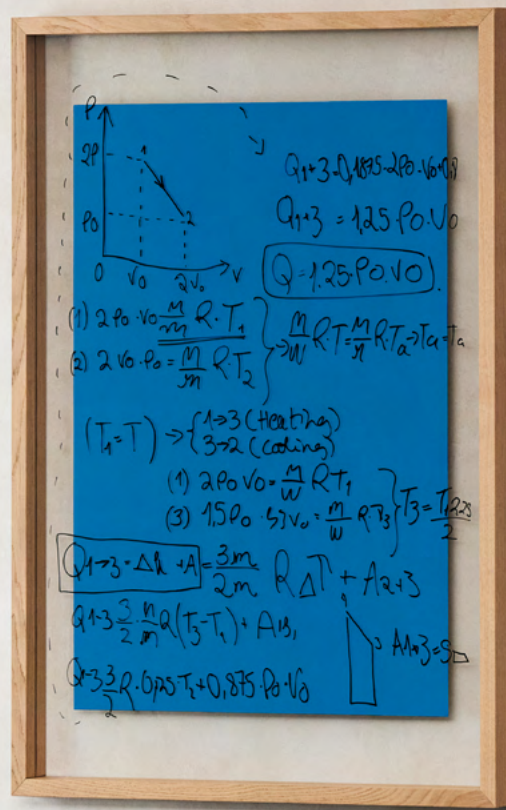 P
2P
1
P0
2
0
V0
2V0
V
Q1+3=0,1875·2P0·V0+0,8
Q1+3 = 1,25 P0·V0
Q=1.25·P0·V0.
(1) 2P0·V0 m/m R·T1
(2) 2V0·P0= M/m R·T2
⇒ M/W R·T= M/M R·Ta→Ta=Ta
(T1=T) ⇒ { 1→3 (Heating)
3→2 (Cooling)
(1) 2P0V0= m/W RT1
(3) 1,5P0·S7V0= m/W R·T3
T3 = T1 2,25/2
Q1→3 = ΔU +A = 3m/2m RΔT + A2+3
Q1-3 3/2·n/m R(T3-T1)+ A13,
Q1-3 3/2 R·0,125·T2+0,875·P0·V0
1
3
A1→3=S